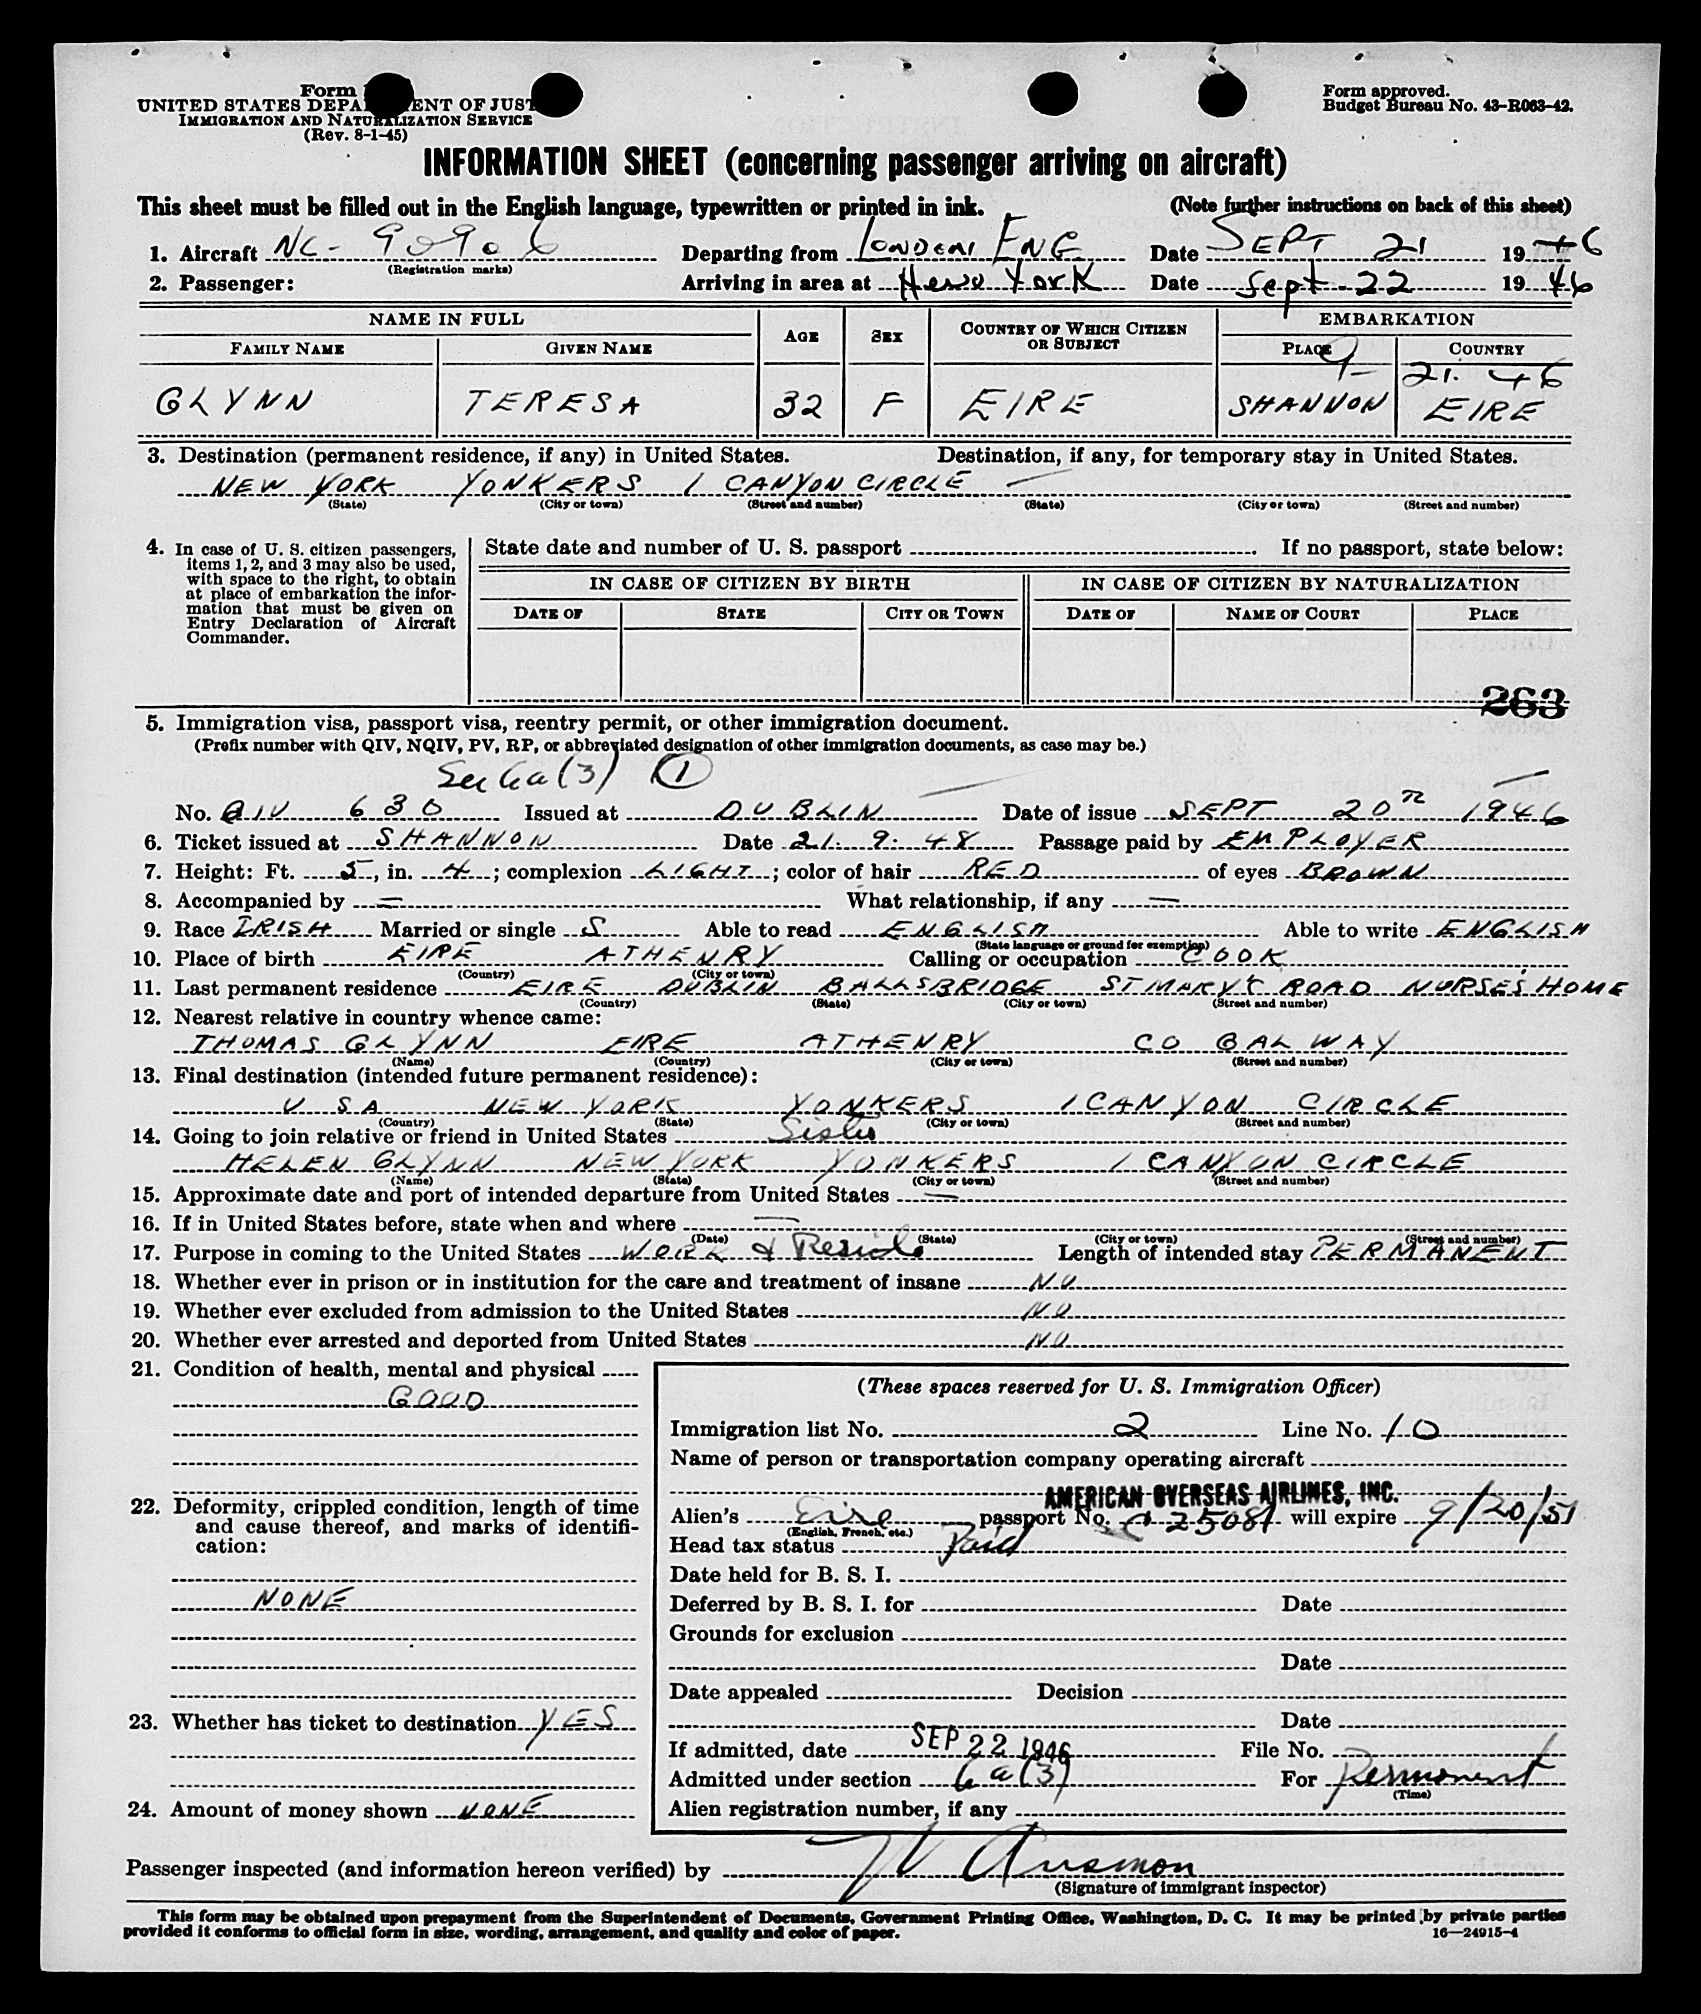 Form
UNITED STATES DEPA ENT OF JUST
IMMIGRATION AND NATURALIZATION SERVICE
(Rev. 8-1-45)
Form approved.
Budget Bureau No. 43-R063-42.
INFORMATION SHEET (concerning passenger arriving on aircraft)
This sheet must be filled out in the English language, typewritten or printed in ink. (Note further instructions on back of this sheet)
1. Aircraft NC- 90906 Departing from LONDON ENG Date SEPT 21 1946
(Registration marks)
2. Passenger: Arriving in area at New York Date Sept-22 1946
NAME IN FULL AGE SEX COUNTRY OF WHICH CITIZEN OR SUBJECT EMBARKATION
FAMILY NAME GIVEN NAME PLACE COUNTRY
9- 21. 46
GLYNN TERESA 32 F EIRE SHANNON EIRE
3. Destination (permanent residence, if any) in United States. Destination, if any, for temporary stay in United States.
NEW YORK YONKERS 1 CANYON CIRCLE —
(State) (City or town) (Street and number) (State) (City or town) (Street and number)
4. In case of U. S. citizen passengers, items 1, 2, and 3 may also be used, with space to the right, to obtain at place of embarkation the information that must be given on Entry Declaration of Aircraft Commander.
State date and number of U. S. passport . If no passport, state below:
IN CASE OF CITIZEN BY BIRTH IN CASE OF CITIZEN BY NATURALIZATION
DATE OF STATE CITY OR TOWN DATE OF NAME OF COURT PLACE
263
5. Immigration visa, passport visa, reentry permit, or other immigration document.
(Prefix number with QIV, NQIV, PV, RP, or abbreviated designation of other immigration documents, as case may be.)
Sec 6a(3) 1
No. QIV 630 Issued at DUBLIN Date of issue SEPT 20TH 1946
6. Ticket issued at SHANNON Date 21. 9. 48 Passage paid by EMPLOYER
7. Height: Ft. 5, in. 4; complexion LIGHT; color of hair RED of eyes BROWN
8. Accompanied by — What relationship, if any —
9. Race IRISH Married or single S Able to read ENGLISH Able to write ENGLISH
(State language or ground for exemption)
10. Place of birth EIRE ATHENRY Calling or occupation COOK
(Country) (City or town)
11. Last permanent residence EIRE DUBLIN BALLSBRIDGE ST MARY'S ROAD NURSES HOME
(Country) (State) (City or town) (Street and number)
12. Nearest relative in country whence came:
THOMAS GLYNN EIRE ATHENRY CO GALWAY
(Name) (Country) (City or town) (Street and number)
13. Final destination (intended future permanent residence):
USA NEW YORK YONKERS 1 CANYON CIRCLE
(Country) (State) (City or town) (Street and number)
14. Going to join relative or friend in United States Sister
HELEN GLYNN NEW YORK YONKERS 1 CANYON CIRCLE
(Name) (State) (City or town) (Street and number)
15. Approximate date and port of intended departure from United States —
16. If in United States before, state when and where —
(Date) (State) (City or town) (Street and number)
17. Purpose in coming to the United States WORK & Reside Length of intended stay PERMANENT
18. Whether ever in prison or in institution for the care and treatment of insane NO
19. Whether ever excluded from admission to the United States NO
20. Whether ever arrested and deported from United States NO
21. Condition of health, mental and physical
GOOD
22. Deformity, crippled condition, length of time and cause thereof, and marks of identification:
NONE
23. Whether has ticket to destination YES
24. Amount of money shown NONE
(These spaces reserved for U. S. Immigration Officer)
Immigration list No. 2 Line No. 10
Name of person or transportation company operating aircraft
AMERICAN OVERSEAS AIRLINES, INC.
Alien's Eire passport No. C 25081 will expire 9/20/51
(English, French, etc.)
Head tax status Paid
Date held for B. S. I.
Deferred by B. S. I. for Date
Grounds for exclusion
Date
Date appealed Decision
Date
If admitted, date SEP 22 1946 File No.
Admitted under section 6a(3) For Permanent
(Time)
Alien registration number, if any
Passenger inspected (and information hereon verified) by
(Signature of immigrant inspector)
This form may be obtained upon prepayment from the Superintendent of Documents, Government Printing Office, Washington, D. C. It may be printed by private parties
provided it conforms to official form in size, wording, arrangement, and quality and color of paper. 16—24915-4